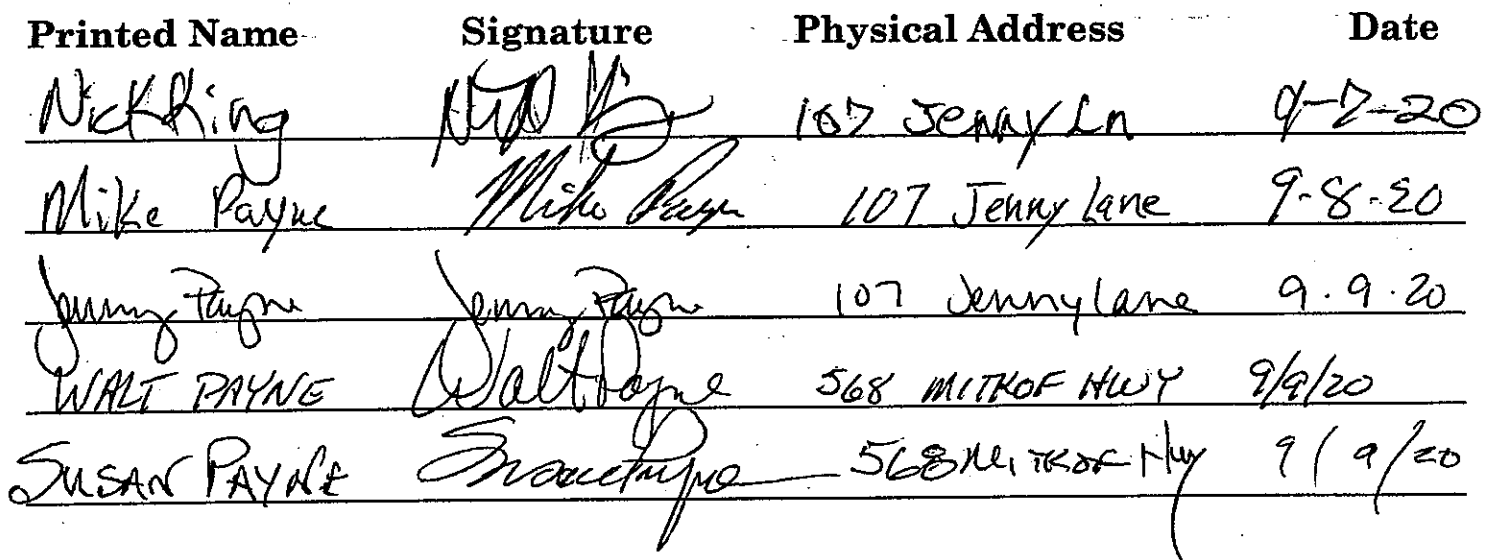 Printed Name Signature Physical Address Date
Nick King Nick King 107 Jenny Ln 9-7-20
Mike Payne Mike Payne 107 Jenny Lane 9-8-20
Jenny Payne Jenny Payne 107 Jenny Lane 9.9.20
WALT PAYNE Walt Payne 568 MITKOF HWY 9/9/20
SUSAN PAYNE Susan Payne 568 MITKOF Hwy 9/9/20